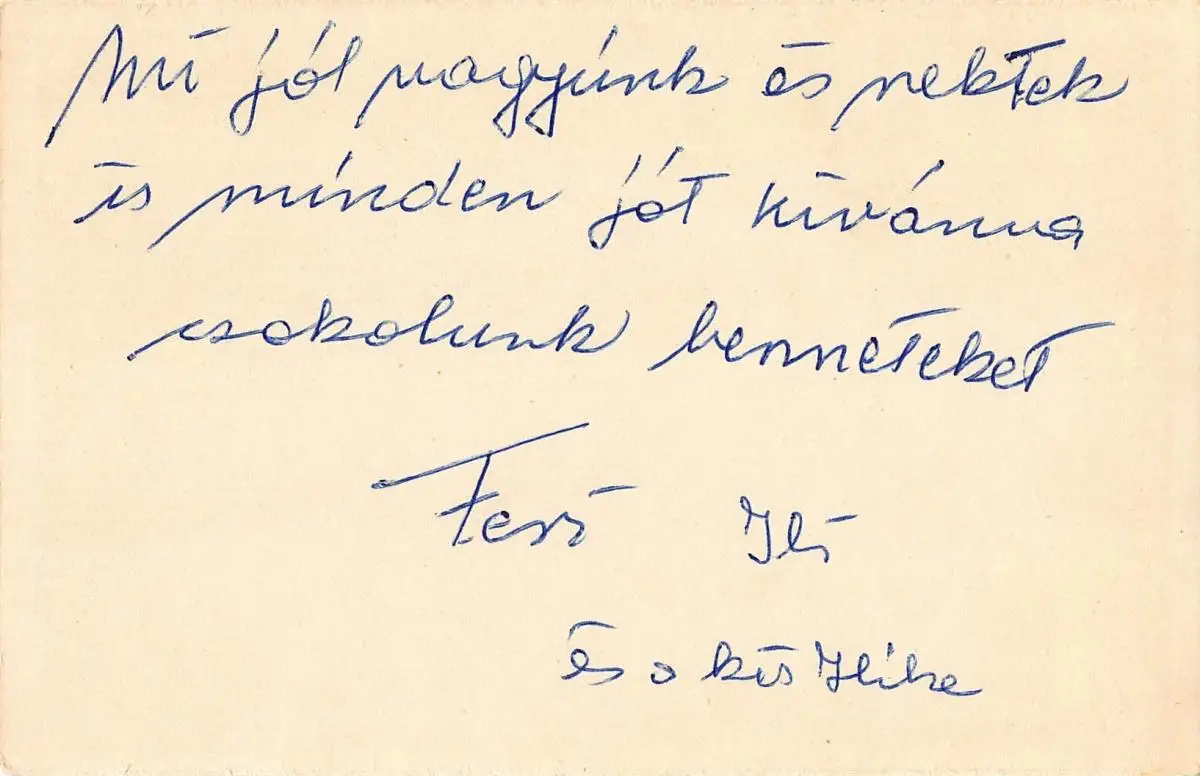 Mi jól vagyunk és nektek
is minden jót kívánva
csokolunk benneteket
Feri Ili
és a kis Ilike